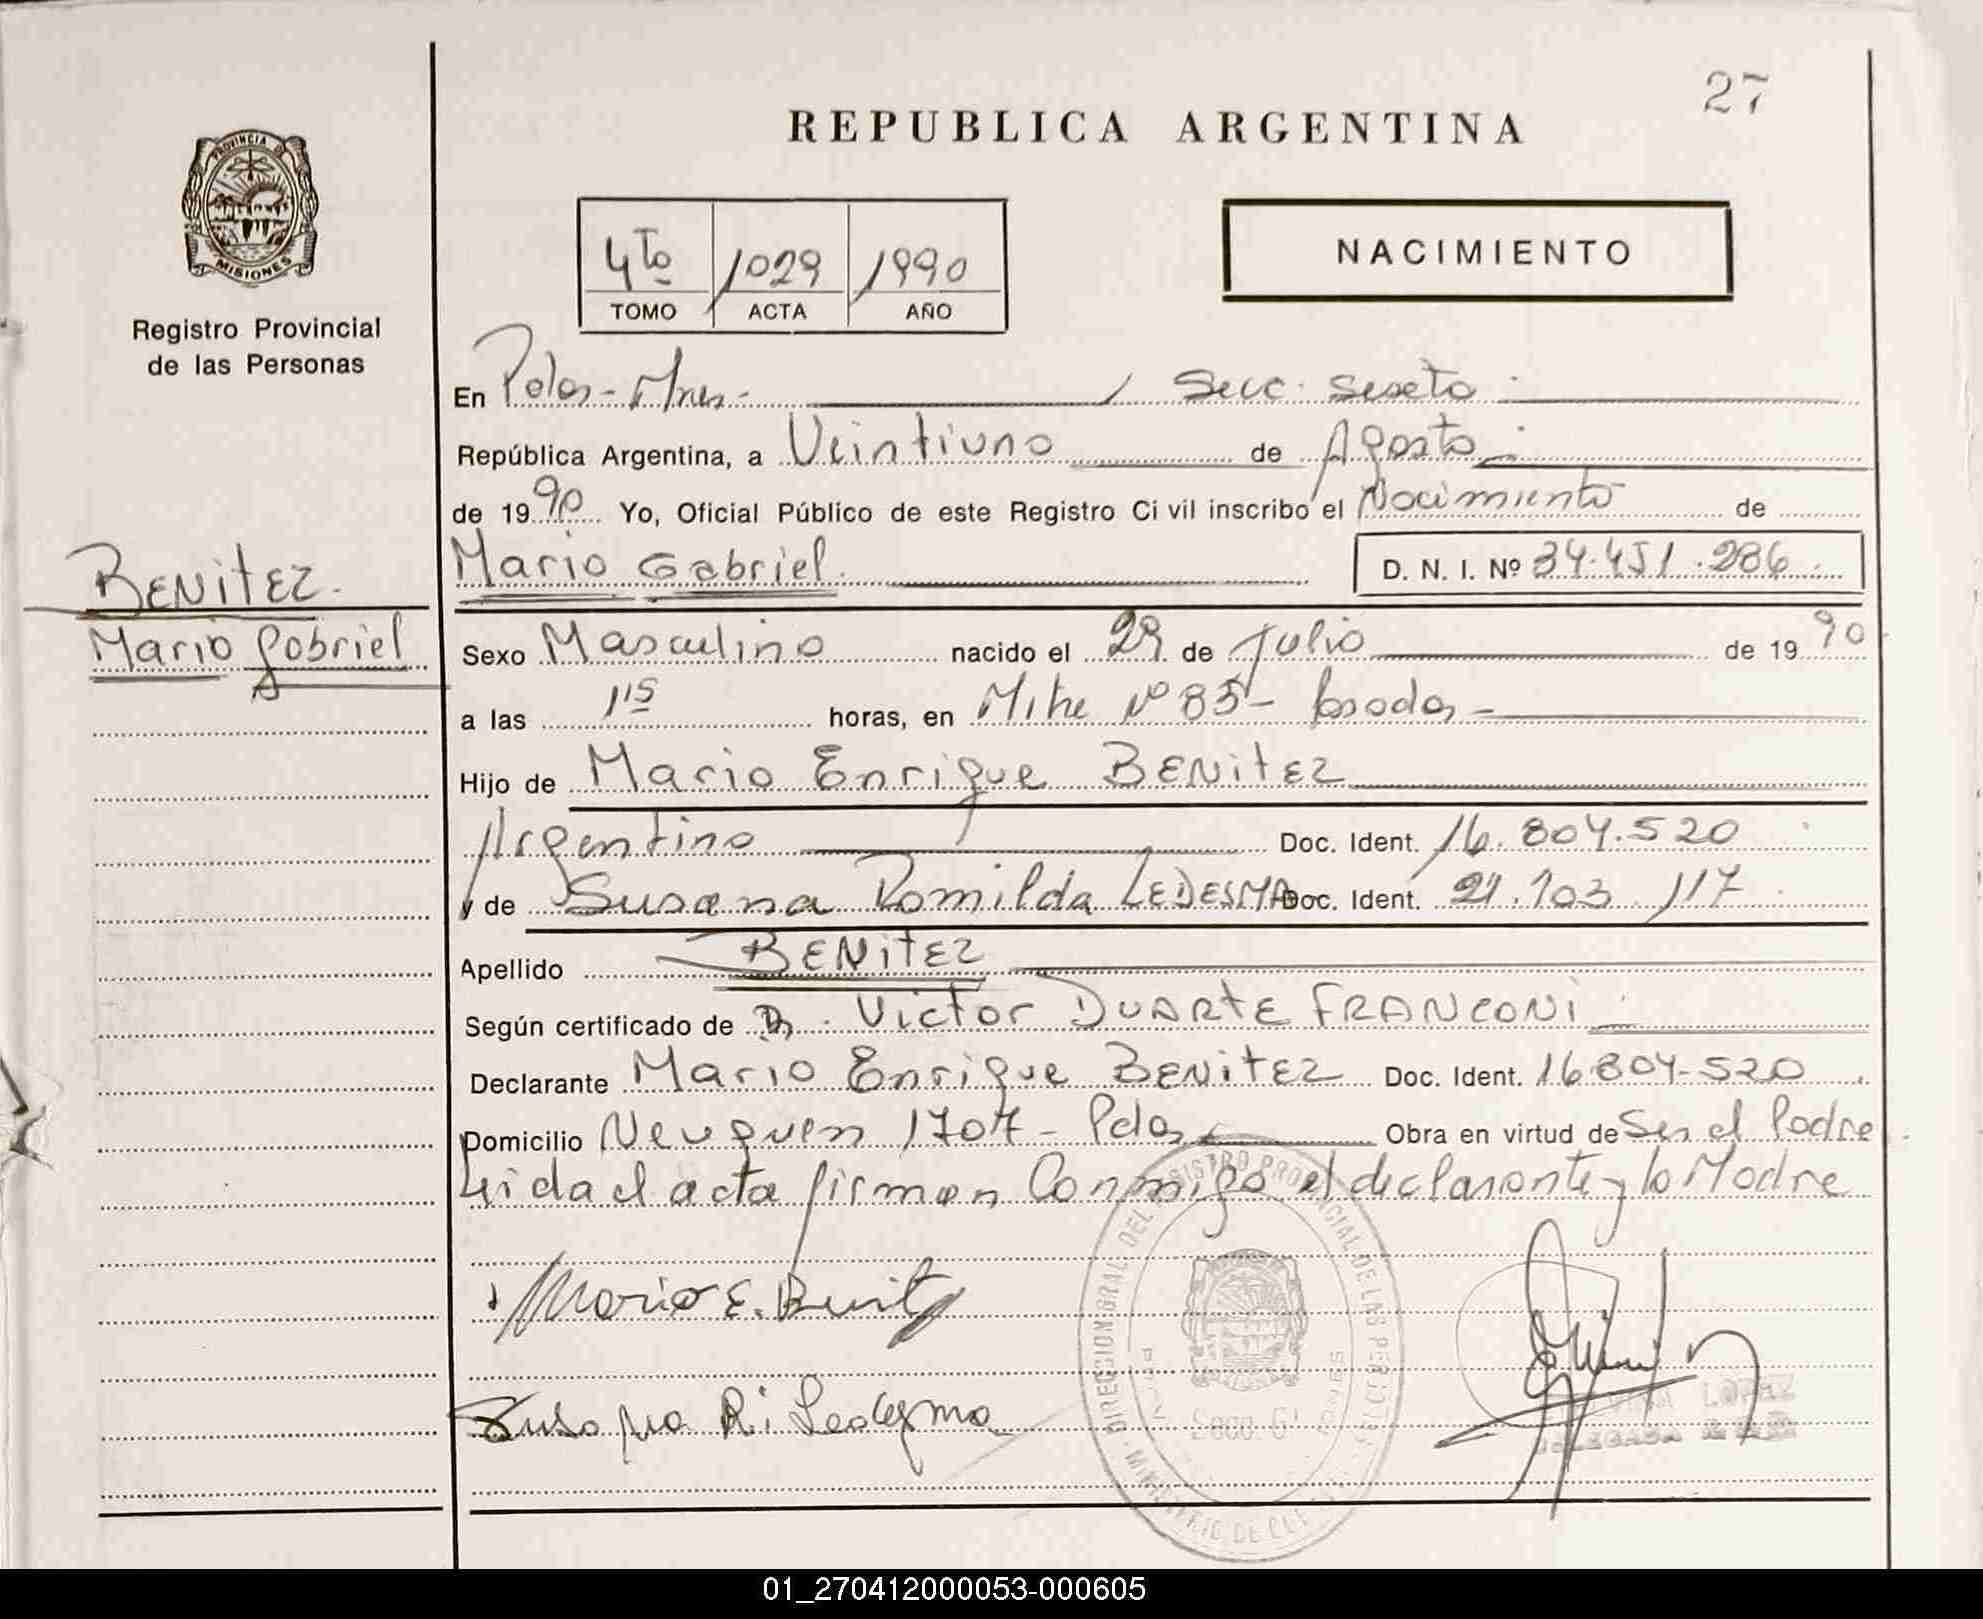 27
REPUBLICA ARGENTINA
PROVINCIA DE
MISIONES
Registro Provincial
de las Personas
4to 1029 1990
TOMO ACTA AÑO
NACIMIENTO
En Pdas - Mnes - Secc. sexta
República Argentina, a Veintiuno de Agosto
de 1990 Yo, Oficial Público de este Registro Civil inscribo el Nacimiento de
BENITEZ.
Mario Gabriel
Mario Gabriel. D. N. I. Nº 34.451.286
Sexo Masculino nacido el 29 de Julio de 1990
a las 1 15 horas, en Mitre Nº 85 -
Hijo de Mario Enrique BENITEZ
Argentino Doc. Ident. 16.804.520
y de Susana Romilda LEDESMA Doc. Ident. 21.103.117
Apellido BENITEZ
Según certificado de Dr. Victor DUARTE FRANCONI
Declarante Mario Enrique BENITEZ Doc. Ident. 16.804-520
Domicilio Neuquen 1707 - Pdas Obra en virtud de Ser el Padre
Leida el acta firman Conmigo el declarante y la Madre
Mario E. Benitez
Susana R. Ledesma
LOPEZ
01_270412000053-000605